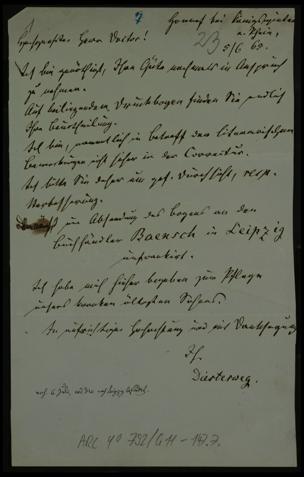 7
Honnef bei Königswinter
a. Rhein,
5/6 65.
Hochgeehrter Herr Doctor!
Ich bin genöthigt, Ihre Güte nochmals in Anspruch
zu nehmen.
Auf beiliegendem Druckbogen finden Sie endlich
Ihre Beurtheilung.
Ich bin, namentlich in betreff der literarischen
Bemerkungen nicht sicher in der Correctur.
Ich bitte Sie daher um gef. Durchsicht, resp.
Verbesserung.
um Absendung des Bogens an den
Buchhändler Baensch in Leipzig
unfrankirt.
Ich habe mich hieher begeben zur Pflege
unsers kranken ältesten Sohnes.
In aufrichtiger Hochachtung und mit Danksagung
Ihr
Diesterweg.
ARC 4º 792/G11-147.7